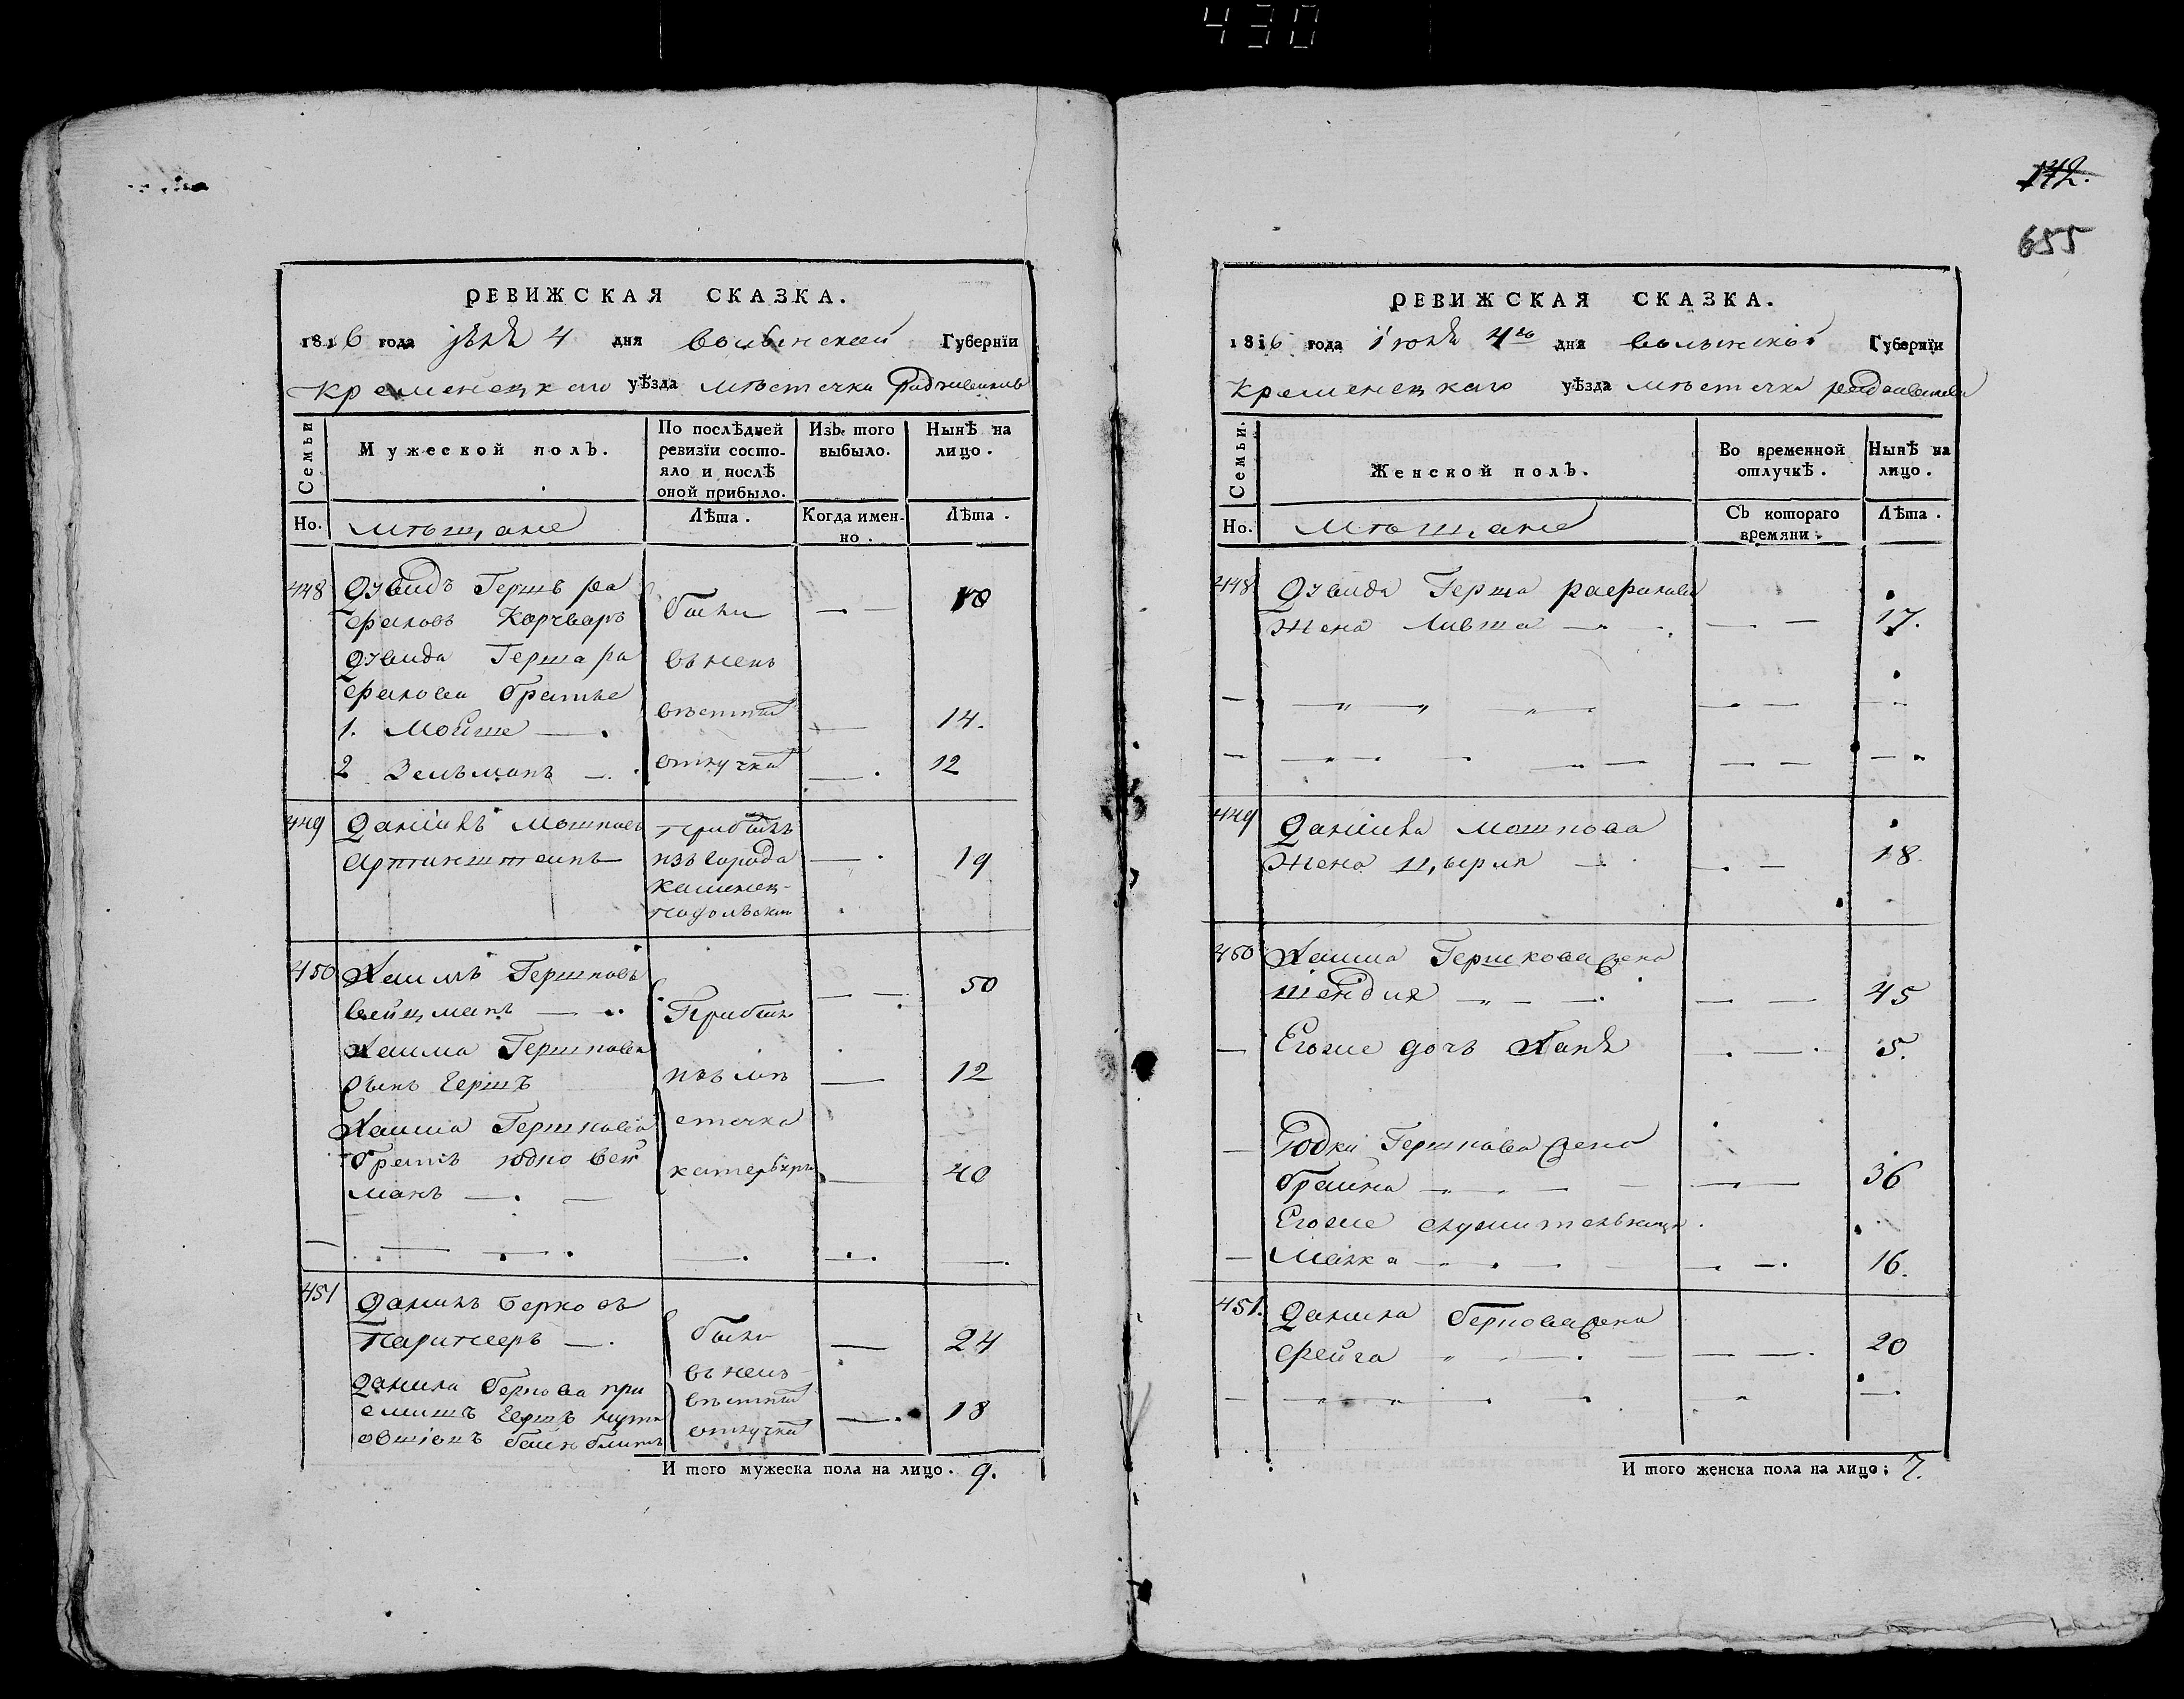 430
РЕВИЖСКАЯ СКАЗКА.
1816 года июня 4 дня волынской Губернїи
Кременецкаго уѣзда мѣстечка Радзивилова
Семьи
Мужеской полъ.
По послѣдней ревизїи состо-
яло и послѣ
оной прибыло.
Изъ того
выбыло.
Нынѣ на
лицо.
Но. мѣщане
Лѣта.
Когда имен-
но.
Лѣта.
448 Давидъ Гершъ ра
фаловъ Корчваръ были — — 18
Давида Герша ра въ неи
фалова братье
1. Мойше — . втстной — 14.
2 Зельманъ — . отлучкѣ — . 12
449 Данїилъ Мошковъ прибылъ
изъ города — . 19
каменец-
подольски
450 Хаимъ Гершковъ
вейцманъ — .. Прибыли — — 50
Хаима Гершкова
сынъ Гершъ изъ мѣ — 12
Хаима Гершкова стечка
братъ юдко вей
манъ — . — — 40
— — — . — . — . — .
451 Данилъ Берковъ
— . были — 24
Данила Беркова при въ неи
емышъ Гершъ втстной — . 18
отлучкѣ
И того мужеска пола на лицо. 9.
142.
655
РЕВИЖСКАЯ СКАЗКА.
1816 года їюня 4го дня волынской Губернїи
Кременецкаго уѣзда мѣстечка радзивилова
Семьи.
Женской полъ.
Во временной
отлучкѣ.
Нынѣ на
лицо.
Но. Мѣщане
Съ котораго
времяни.
Лѣта.
448 Давида Герша рафалова
жена Ливша — — — 17.
449 Данїила мошкова
жена Цырля — . — 18.
450 Хаима Гершкова жена
Шендля — „ — — . — — 45
— Егоже дочь Ханя . — . 5.
— Юдки Гершкова жена
браина — — — — — — 36
Егоже служительница
— Малка — . — — . 16.
451. Данила Беркова жена
Фейга „ „ — . — — — . 20
И того женска пола на лицо: 7.